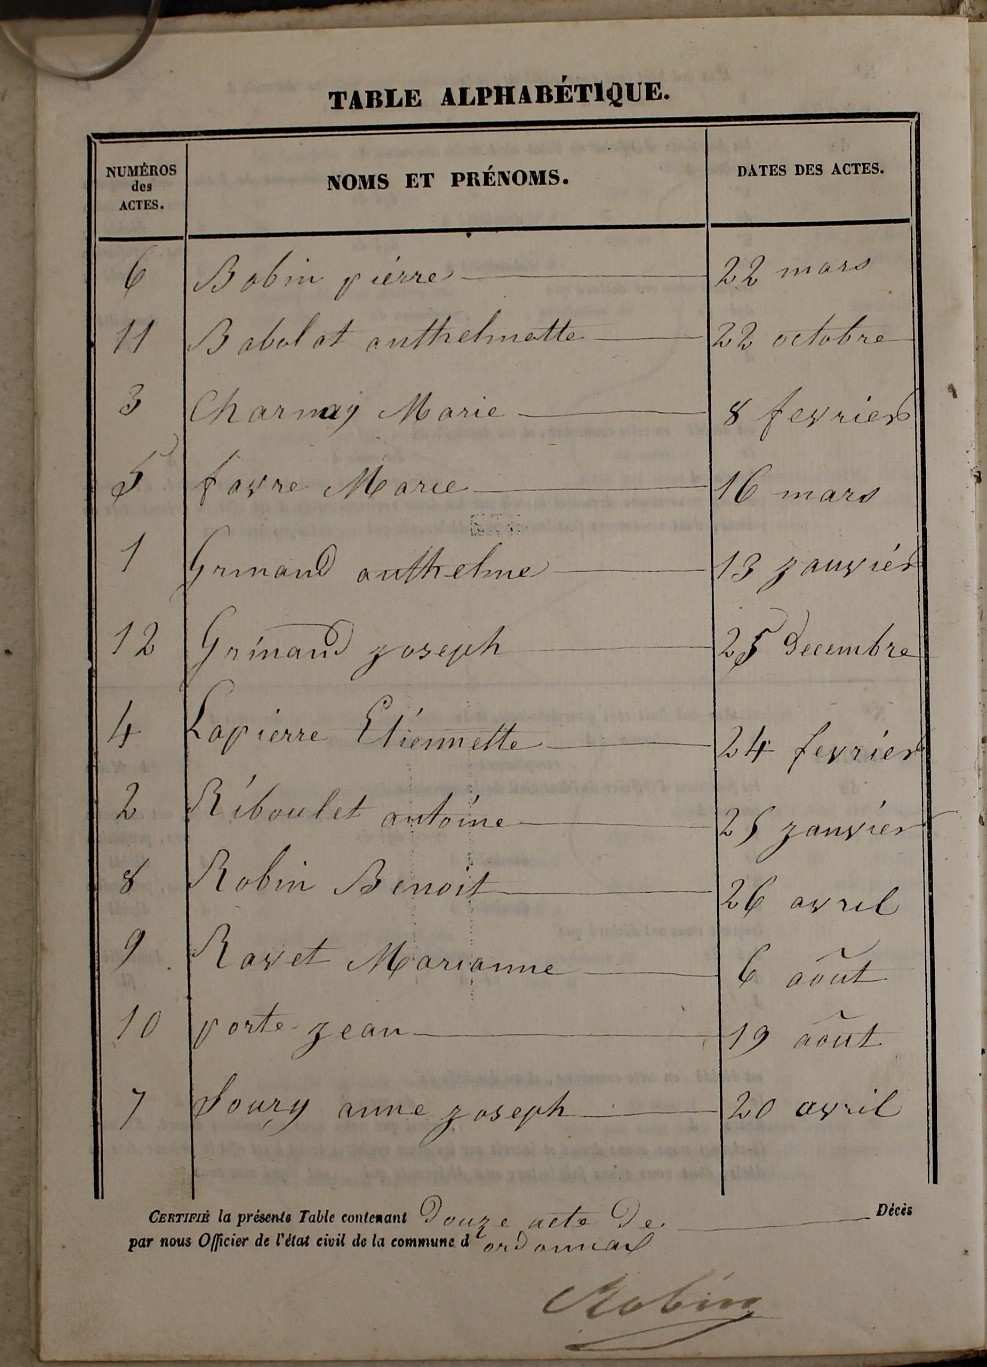 TABLE ALPHABÉTIQUE.
NUMÉROS des ACTES. NOMS ET PRÉNOMS. DATES DES ACTES.
6 Bobin piérre 22 mars
11 Babolat anthelmette 22 octobre
3 Charnay Marie 8 fevrier
5 favre Marie 16 mars
1 Grinand anthelme 13 janviér
12 Grinand joseph 25 decembre
4 Lapierre Etiennette 24 fevrier
2 Riboulet antoine 25 janviér
8 Robin Benoit 26 avril
9 Ravet Marianne 6 août
10 porte jean 19 août
7 Soury anne joseph 20 avril
CERTIFIÉ la présente Table contenant douze acte de Décès
par nous Officier de l'état civil de la commune d'ordonnax
Robin